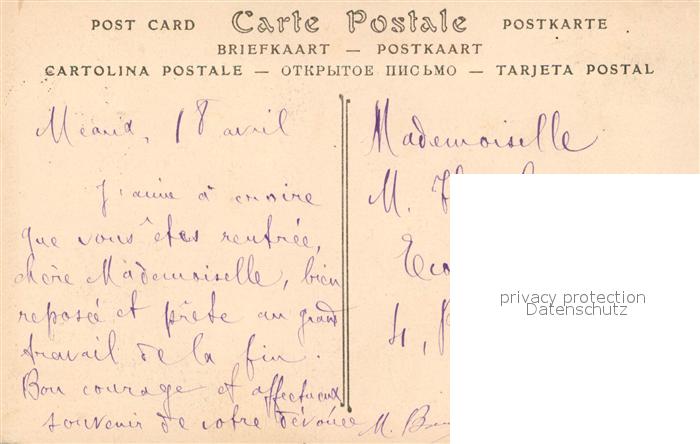 POST CARD Carte Postale POSTKARTE
BRIEFKAART — POSTKAART
CARTOLINA POSTALE — ОТКРЫТОЕ ПИСЬМО — TARJETA POSTAL
18 avril
J'aime à croire
que vous êtes rentrée,
chère Mademoiselle, bien
reposée et prête au grand
travail de la fin.
Bon courage et affectueux
souvenir de votre dévouée
Mademoiselle
M.
4,
M.
privacy protection
Datenschutz